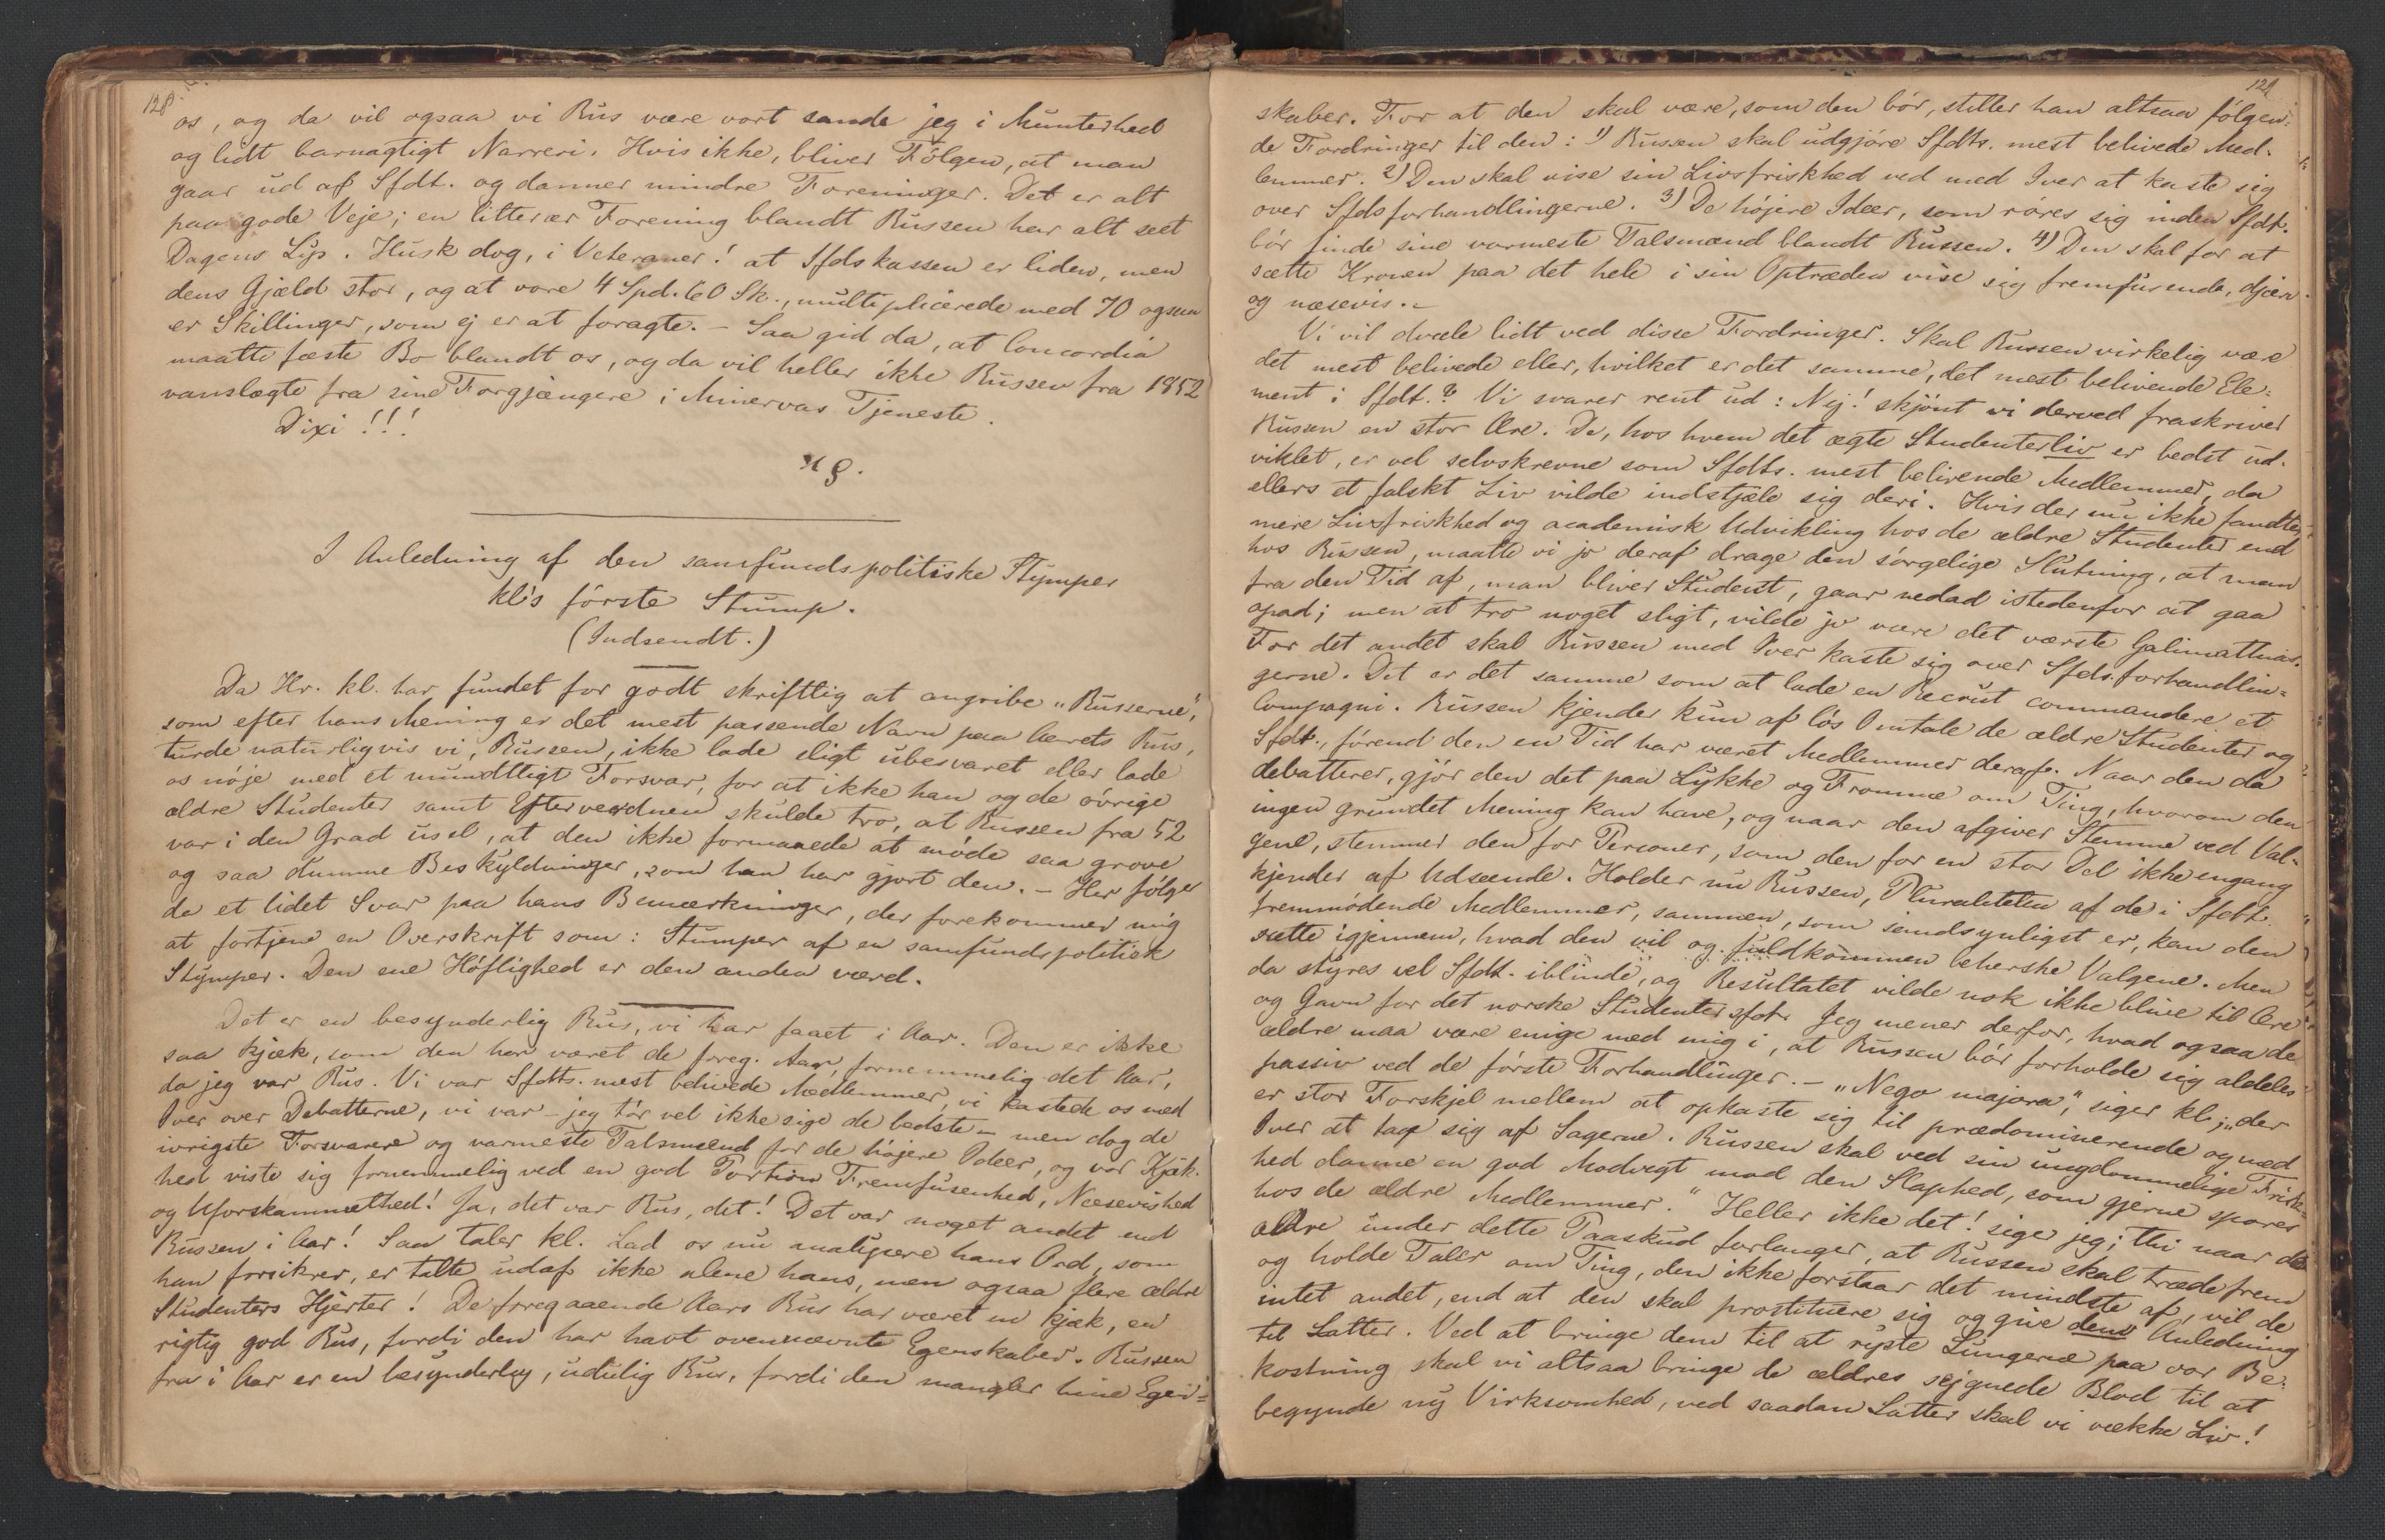 128
os, og da vil ogsaa vi Rus være vort sande jeg i Munterhed
og lidt barnagtigt Narreri. Hvis ikke, bliver Følgen, at man
gaar ud af Sfdt. og danner mindre Foreninger. Det er alt
paa gode Veje; en litterær Forening blandt Russen har alt seet
Dagens Lys. Husk dog, i Veteraner! at Sfdskassen er liden, men
dens Gjæld stor, og at vore 4 Spd. 60 Sk., multiplicerede med 70 ogsaa
er Skillinger, som ej er at foragte. – Saa gid da, at Concordia
maatte fæste Bo blandt os, og da vil heller ikke Russen fra 1852
vanslægte fra sine Forgjængere i Minervas Tjeneste.
Dixi!!!
I Anledning af den samfundspolitiske Stymper
kl's første Stump.
(Indsendt.)
Da Hr. kl. har fundet for godt skriftlig at angribe „Russerne",
som efter hans Mening er det mest passende Navn paa Aarets Rus,
turde naturligvis vi, Russen, ikke lade sligt ubesvaret eller lade
os nøje med et mundtligt Forsvar, for at ikke han og de øvrige
ældre Studenter samt Efterverdnen skulde tro, at Russen fra 52
var i den Grad ussel, at den ikke formaaede at møde saa grove
og saa dumme Beskyldninger, som han har gjort den. – Her følger
da et lidet Svar paa hans Bemærkninger, der forekommer mig
at fortjene en Overskrift som: Stumper af en samfundspolitisk
Stymper. Den ene Høflighed er den anden værd.
Det er en besynderlig Rus, vi har faaet i Aar. Den er ikke
saa kjæk, som den har været de foreg. Aar, fornemmelig det Aar,
da jeg var Rus. Vi var Sfdts. mest belivede Medlemmer, vi kastede os med
Iver over Debatterne, vi var – jeg tør vel ikke sige de bedste – men dog de
ivrigste Forsvarere og varmeste Talsmænd for de højere Ideer, og vor Kjæk-
hed viste sig fornemmelig ved en god Portion Fremfusenhed, Næsevished
og Uforskammethed! Ja, det var Rus, det! Det var noget andet end
Russen i Aar! Saa taler kl. Lad os nu analysere hans Ord, som
han forsikrer, er talte udaf ikke alene hans, men ogsaa flere ældre
Studenters Hjerter! De foregaaende Aars Rus har været en kjæk, en
rigtig god Rus, fordi den har havt ovennævnte Egenskaber. Russen
fra i Aar er en besynderlig, udulig Rus, fordi den mangler hine Egen=
129
skaber. For at den skal være, som den bør, stiller han altsaa følgen=
de Fordringer til den: 1) Russen skal udgjøre Sfdts. mest belivede Med-
lemmer. 2) Den skal vise sin Livsfriskhed ved med Iver at kaste sig
over Sfdsforhandlingerne. 3) De højere Ideer, som røres sig inden Sfdt.
bør finde sine varmeste Talsmænd blandt Russen. 4) Den skal for at
sætte Kronen paa det hele i sin Optræden vise sig fremfusende, djærv
og næsevis. –
Vi vil dvæle lidt ved disse Fordringer. Skal Russen virkelig være
det mest belivede eller, hvilket er det samme, det mest belivende Ele=
ment i Sfdt.? Vi svarer rent ud: Nej! skjønt vi derved fraskriver
Russen en stor Ære. De, hos hvem det ægte Studenterliv er bedst ud-
viklet, er vel selvskrevne som Sfdts. mest belivende Medlemmer, da
ellers et falskt Liv vilde indstjæle sig deri. Hvis der nu ikke fandtes
mere Livsfriskhed og academisk Udvikling hos de ældre Studenter end
hos Russen, maatte vi jo deraf drage den sørgelige Slutning, at man
fra den Tid af, man bliver Student, gaar nedad istedenfor at gaa
opad; men at tro noget sligt, vilde jo være det værste Galimathias.
For det andet skal Russen med Iver kaste sig over Sfdsforhandlin=
gerne. Det er det samme som at lade en Recrut commandere et
Compagni. Russen kjender kun af løs Omtale de ældre Studenter og
Sfdt., førend den en Tid har været Medlemmer deraf. Naar den da
debatterer, gjør den det paa Lykke og Fromme om Ting, hvorom den
ingen grundet Mening kan have, og naar den afgiver Stemme ved Val-
gene, stemmer den for Personer, som den for en stor Del ikke engang
kjender af Udseende. Holder nu Russen, Pluraliteten af de i Sfdt.
fremmødende Medlemmer, sammen, som sandsynligst er, kan den
sætte igjennem, hvad den vil og fuldkommen beherske Valgene. Men
da styres vel Sfdt. iblinde, og Resultatet vilde nok ikke blive til Ære
og Gavn for det norske Studentersfdt. Jeg mener derfor, hvad ogsaa de
ældre maa være enige med mig i, at Russen bør forholde sig aldeles
passiv ved de første Forhandlinger. – „Nego majora," siger kl.; „der
er stor Forskjel mellem at opkaste sig til prædominerende og med
Iver at tage sig af Sagerne. Russen skal ved sin ungdommelige Frisk-
hed danne en god Modvegt mod den Slaphed, som gjerne sporer
hos de ældre Medlemmer." Heller ikke det! siger jeg; thi naar de
ældre under dette Paaskud forlanger, at Russen skal træde frem
og holde Taler om Ting, den ikke forstaar det mindste af, vil de
intet andet, end at den skal prostituere sig og give dem Anledning
til Latter. Ved at bringe dem til at ryste Lungerne paa vor Be-
kostning skal vi altsaa bringe de ældres sejgnede Blod til at
begynde ny Virksomhed, ved saadan Latter skal vi vække Liv!